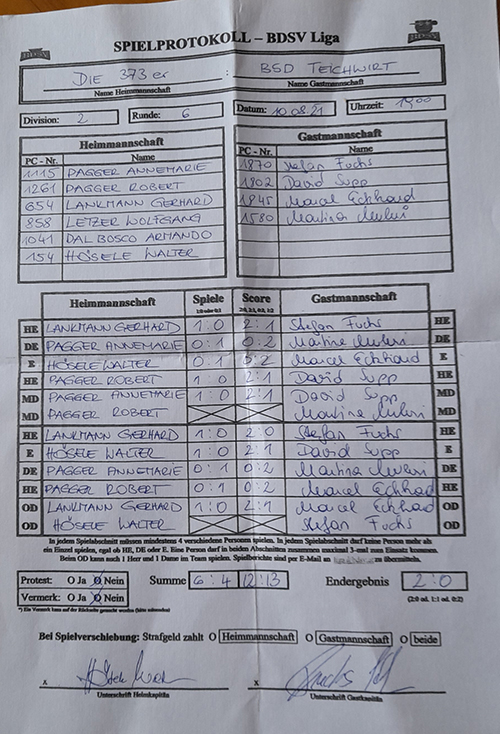 SPIELPROTOKOLL – BDSV Liga
DIE 373er : BSD TEICHWIRT
Name Heimmannschaft Name Gastmannschaft
Division: 2 Runde: 6 Datum: 10.08.21 Uhrzeit: 19,00
Heimmannschaft Gastmannschaft
PC - Nr. Name PC - Nr. Name
1115 PAGGER ANNEMARIE 1870 Stefan Fuchs
1261 PAGGER ROBERT 1802 David Supp
654 LANKMANN GERHARD 1845 Marcel Eckhard
858 LETZER WOLFGANG 1580 Martina
1041 DAL BOSCO ARMANDO
154 HÖSELE WALTER
Heimmannschaft Spiele Score Gastmannschaft
1:0 oder 0:1 2:0, 2:1, 0:2, 1:2
HE LANKMANN GERHARD 1:0 2:1 Stefan Fuchs HE
DE PAGGER ANNEMARIE 0:1 0:2 Martina DE
E HÖSELE WALTER 0:1 0:2 Marcel Eckhard E
HE PAGGER ROBERT 1:0 2:1 David Supp HE
MD PAGGER ANNEMARIE 1:0 2:1 David Supp MD
MD PAGGER ROBERT Martina MD
HE LANKMANN GERHARD 1:0 2:0 Stefan Fuchs HE
E HÖSELE WALTER 1:0 2:1 David Supp E
DE PAGGER ANNEMARIE 0:1 0:2 Martina DE
HE PAGGER ROBERT 0:1 0:2 Marcel Eckhard HE
OD LANKMANN GERHARD 1:0 2:1 Marcel Eckhard OD
OD HÖSELE WALTER Stefan Fuchs OD
In jedem Spielabschnitt müssen mindestens 4 verschiedene Personen spielen. In jedem Spielabschnitt darf keine Person mehr als
ein Einzel spielen, egal ob HE, DE oder E. Eine Person darf in beiden Abschnitten zusammen maximal 3-mal zum Einsatz kommen.
Beim OD kann auch 1 Herr und 1 Dame im Team spielen. Spielberichte sind per E-Mail an zu übermitteln.
Protest: O Ja O Nein Summe 6:4 12:13 Endergebnis 2:0
Vermerk: O Ja O Nein (2:0 od. 1:1 od. 0:2)
*) Ein Vermerk kann auf der Rückseite gemacht werden (bitte anwenden)
Bei Spielverschiebung: Strafgeld zahlt O Heimmannschaft O Gastmannschaft O beide
x x
Unterschrift Heimkapitän Unterschrift Gastkapitän